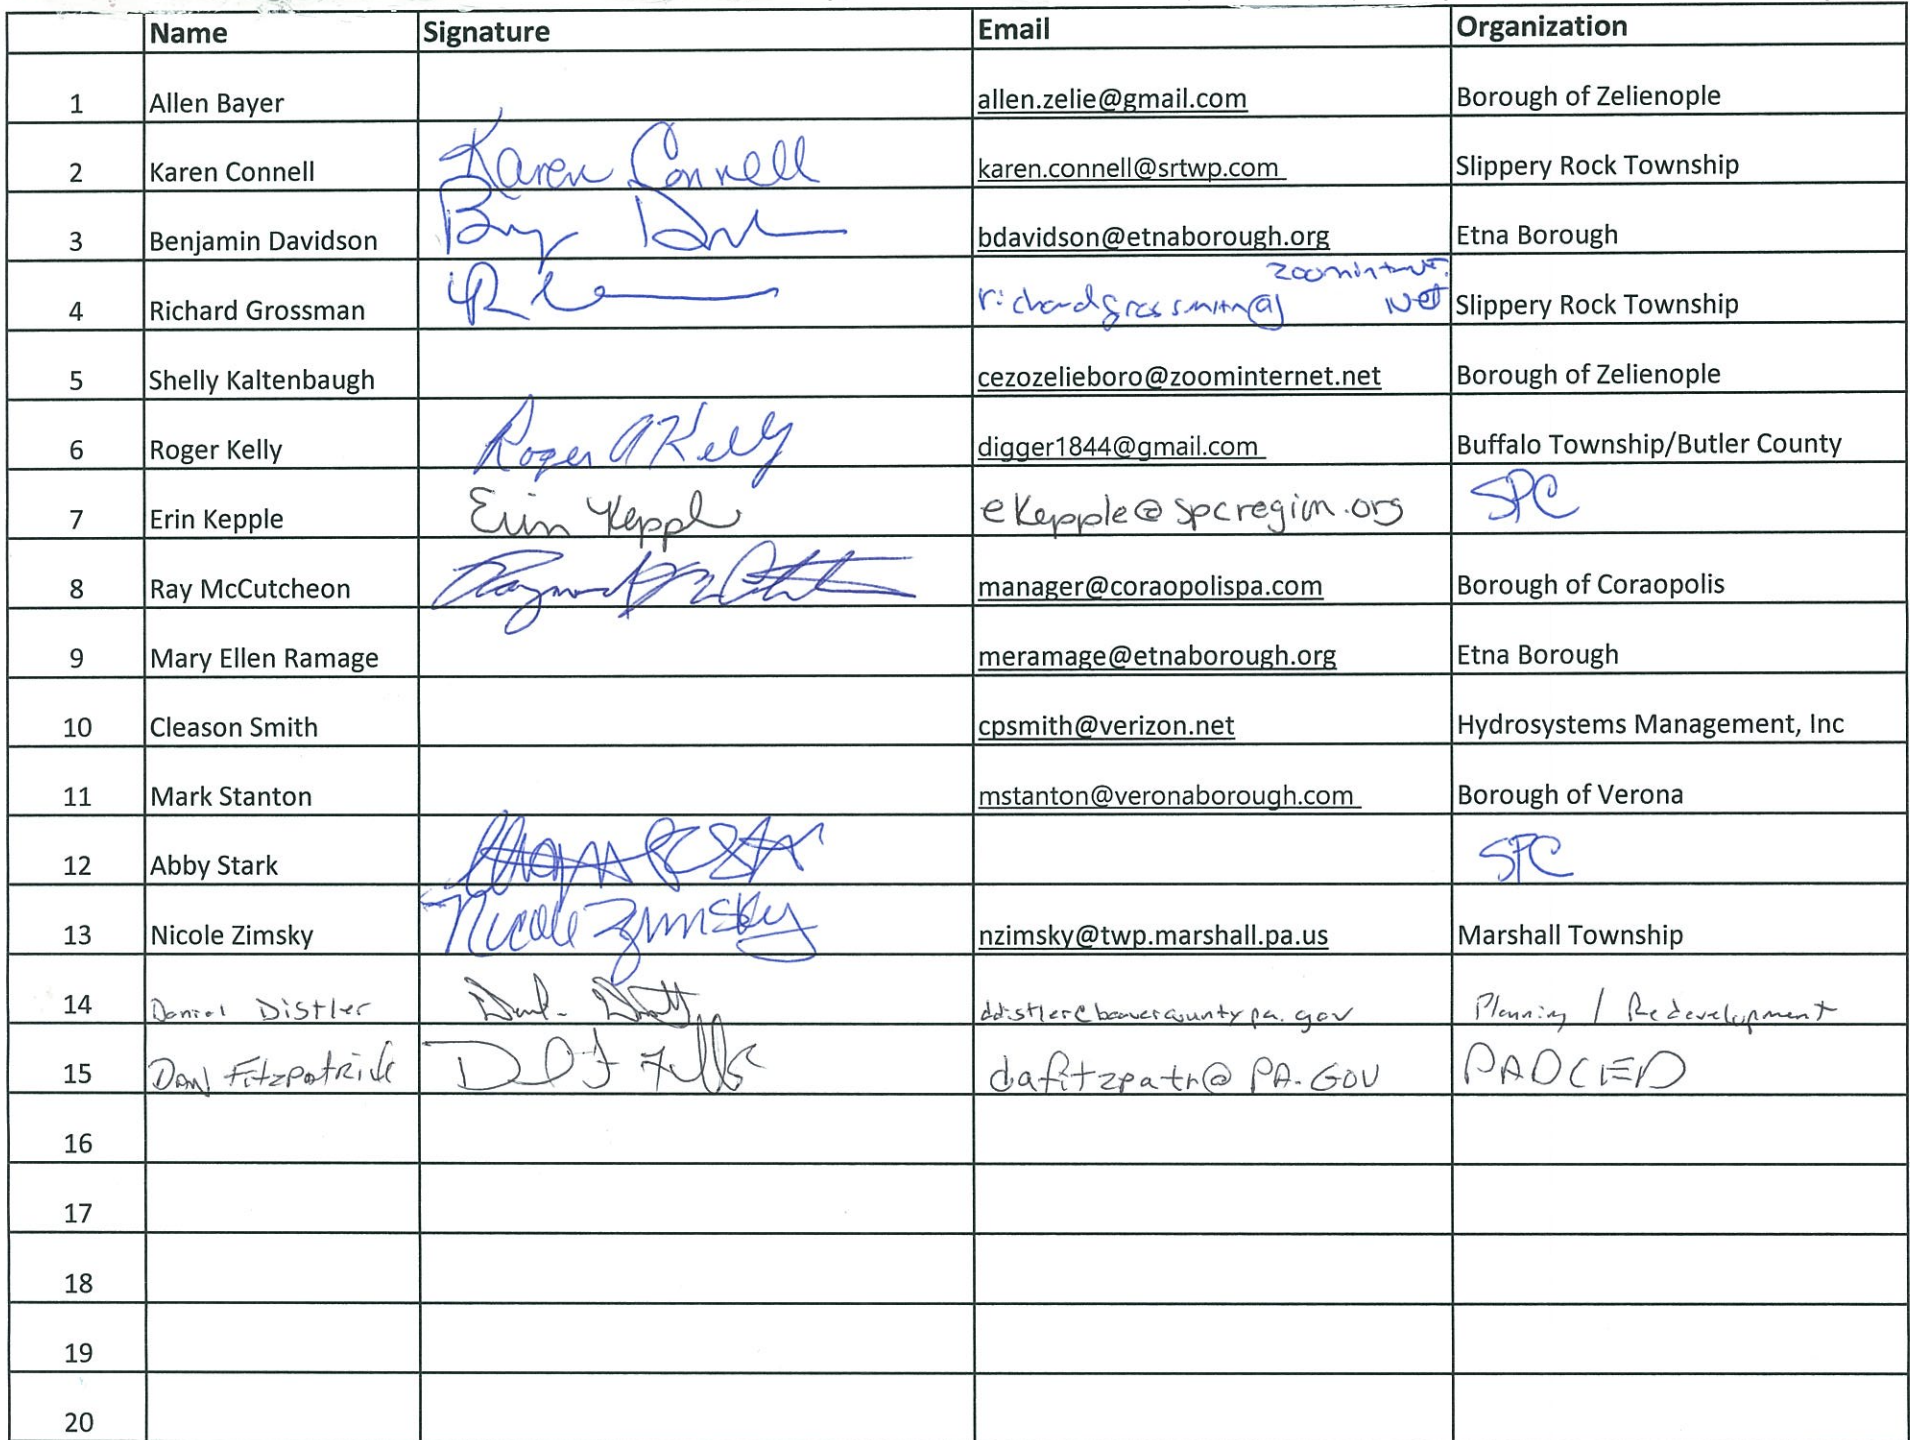 Name Signature Email Organization
1 Allen Bayer allen.zelie@gmail.com Borough of Zelienople
2 Karen Connell Karen Connell karen.connell@srtwp.com Slippery Rock Township
3 Benjamin Davidson bdavidson@etnaborough.org Etna Borough
zoominternet.
4 Richard Grossman richardgrossman@ net Slippery Rock Township
5 Shelly Kaltenbaugh cezozelieboro@zoominternet.net Borough of Zelienople
6 Roger Kelly Roger A Kelly digger1844@gmail.com Buffalo Township/Butler County
7 Erin Kepple Erin Kepple ekepple@spcregion.org SPC
8 Ray McCutcheon manager@coraopolispa.com Borough of Coraopolis
9 Mary Ellen Ramage meramage@etnaborough.org Etna Borough
10 Cleason Smith cpsmith@verizon.net Hydrosystems Management, Inc
11 Mark Stanton mstanton@veronaborough.com Borough of Verona
12 Abby Stark SPC
13 Nicole Zimsky Nicole Zimsky nzimsky@twp.marshall.pa.us Marshall Township
14 Daniel Distler ddistler@beavercountypa.gov Planning / Redevelopment
15 Dan Fitzpatrick dafitzpatr@PA.GOV PADCED
16
17
18
19
20